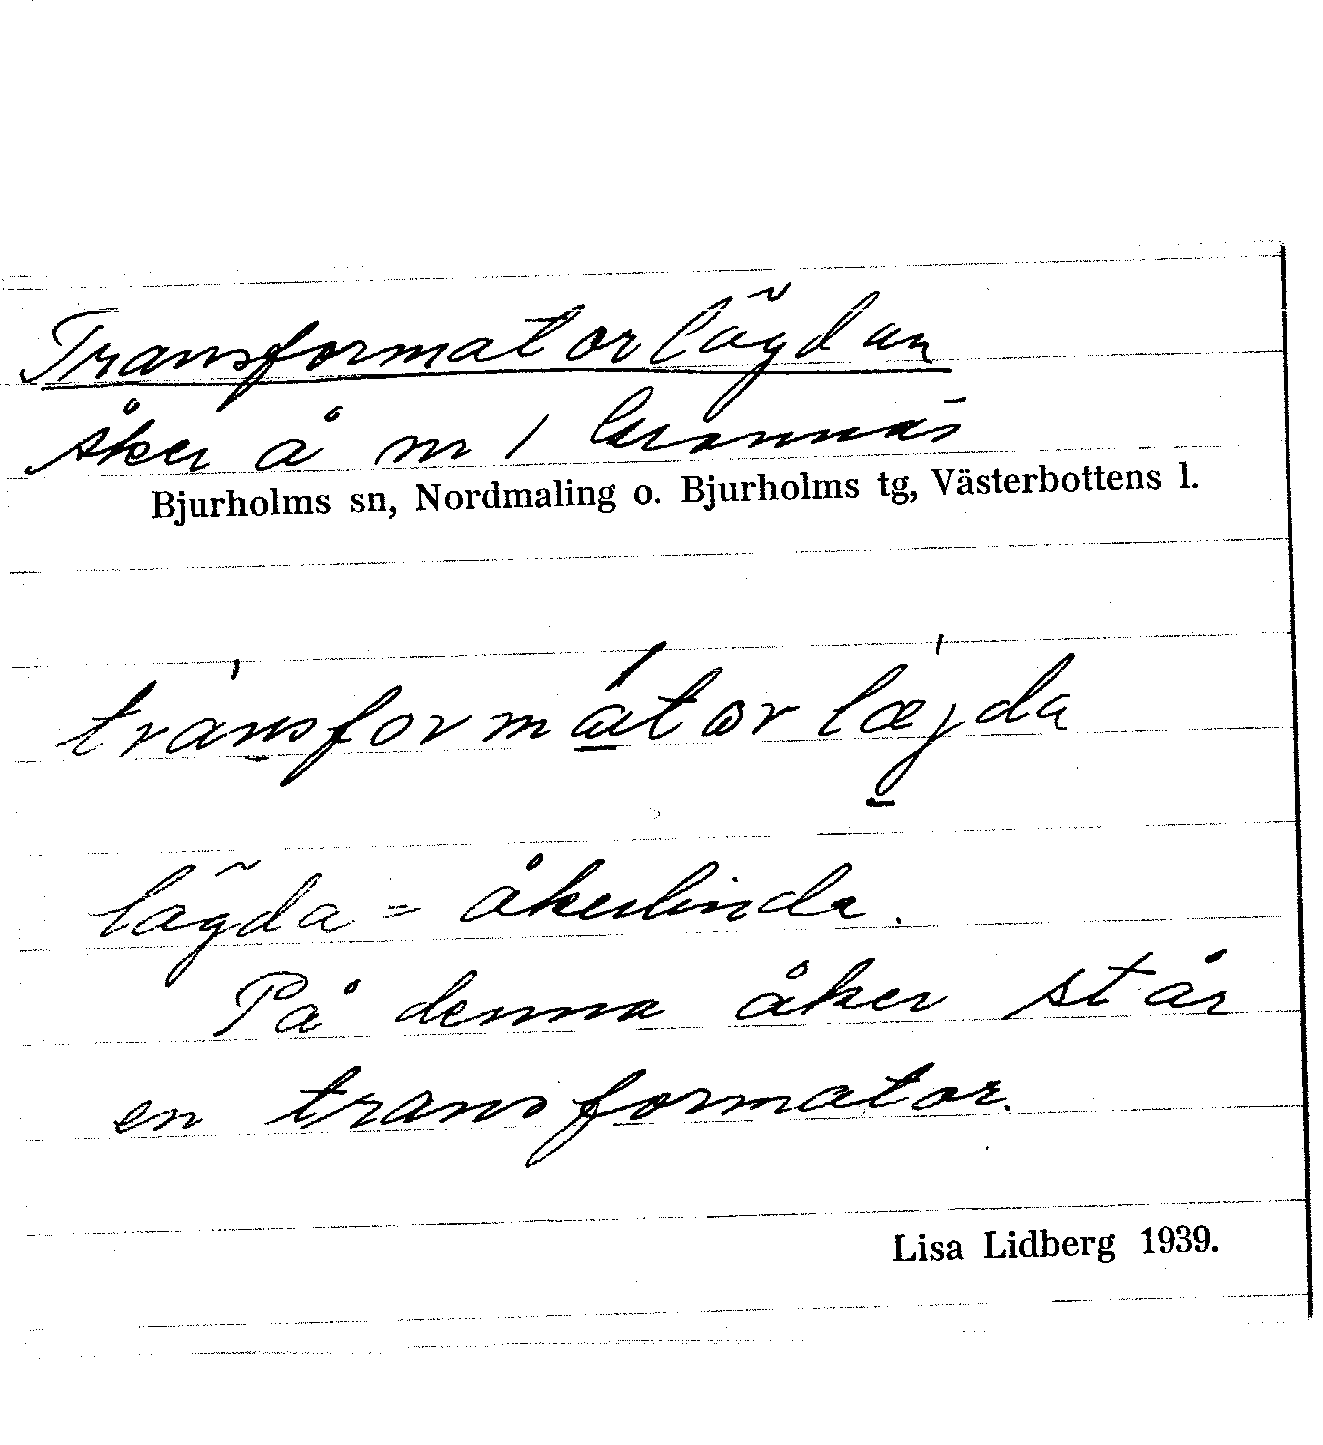 Transformatorlägdan
åker å m 1 Grannäs
Bjurholms sn, Nordmaling o. Bjurholms tg, Västerbottens l.
tránsformátorlæjda
lägda = åkerlinda.
På denna åker står
en transformator.
Lisa Lidberg 1939.